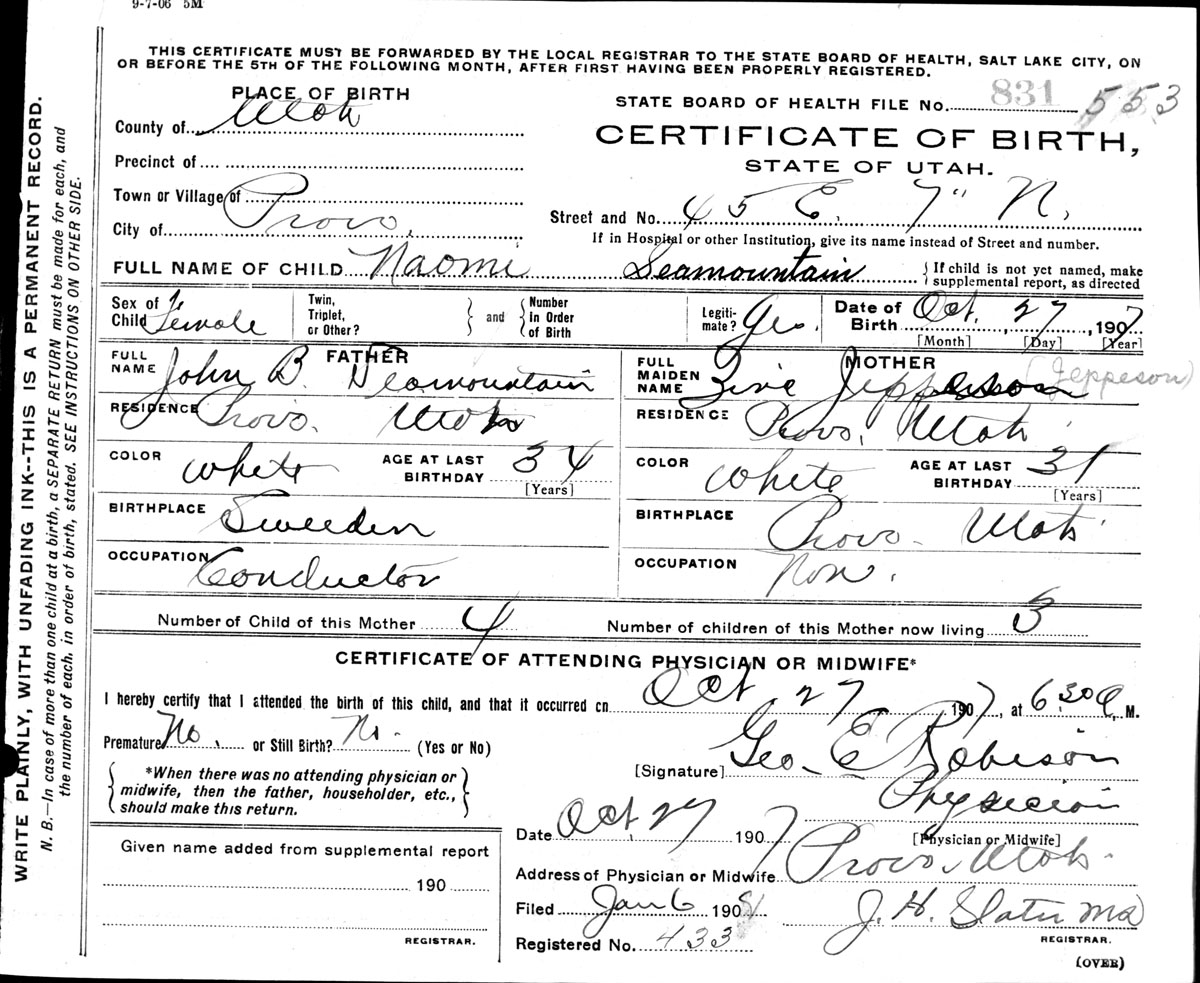 9-7-06 5M
THIS CERTIFICATE MUST BE FORWARDED BY THE LOCAL REGISTRAR TO THE STATE BOARD OF HEALTH, SALT LAKE CITY, ON
OR BEFORE THE 5TH OF THE FOLLOWING MONTH, AFTER FIRST HAVING BEEN PROPERLY REGISTERED.
PLACE OF BIRTH
County of Utah
Precinct of
Town or Village of
City of Provo.
STATE BOARD OF HEALTH FILE No. 831 553
CERTIFICATE OF BIRTH,
STATE OF UTAH.
Street and No. 45 E. 7" N.
If in Hospital or other Institution, give its name instead of Street and number.
FULL NAME OF CHILD Naomi Seamountain { If child is not yet named, make
supplemental report, as directed
Sex of Child Female
Twin, Triplet, or Other? } and { Number In Order of Birth
Legiti-mate? Yes.
Date of Birth Oct. 27, 1907
[Month] [Day] [Year]
FATHER
FULL NAME John B. Seamountain
RESIDENCE Provo. Utah
COLOR White AGE AT LAST BIRTHDAY 34
[Years]
BIRTHPLACE Sweeden
OCCUPATION Conductor
MOTHER
FULL MAIDEN NAME Jeppeson (Jeppeson)
RESIDENCE Provo, Utah
COLOR White AGE AT LAST BIRTHDAY 31
[Years]
BIRTHPLACE Provo - Utah
OCCUPATION Non.
Number of Child of this Mother 4 Number of children of this Mother now living 3
CERTIFICATE OF ATTENDING PHYSICIAN OR MIDWIFE*
I hereby certify that I attended the birth of this child, and that it occurred on Oct. 27 1907, at 6:30 a. M.
Premature No. or Still Birth? No. (Yes or No)
{ *When there was no attending physician or
midwife, then the father, householder, etc.,
should make this return. }
[Signature] Geo. E Robison
Physician
[Physician or Midwife]
Date Oct. 27 1907
Address of Physician or Midwife Provo, Utah.
Given name added from supplemental report
190
REGISTRAR.
Filed Jan 6 1908
Registered No. 433
J. H. Slater MD
REGISTRAR.
(OVER)
WRITE PLAINLY, WITH UNFADING INK--THIS IS A PERMANENT RECORD.
N. B.—In case of more than one child at a birth, a SEPARATE RETURN must be made for each, and
the number of each, in order of birth, stated. SEE INSTRUCTIONS ON OTHER SIDE.